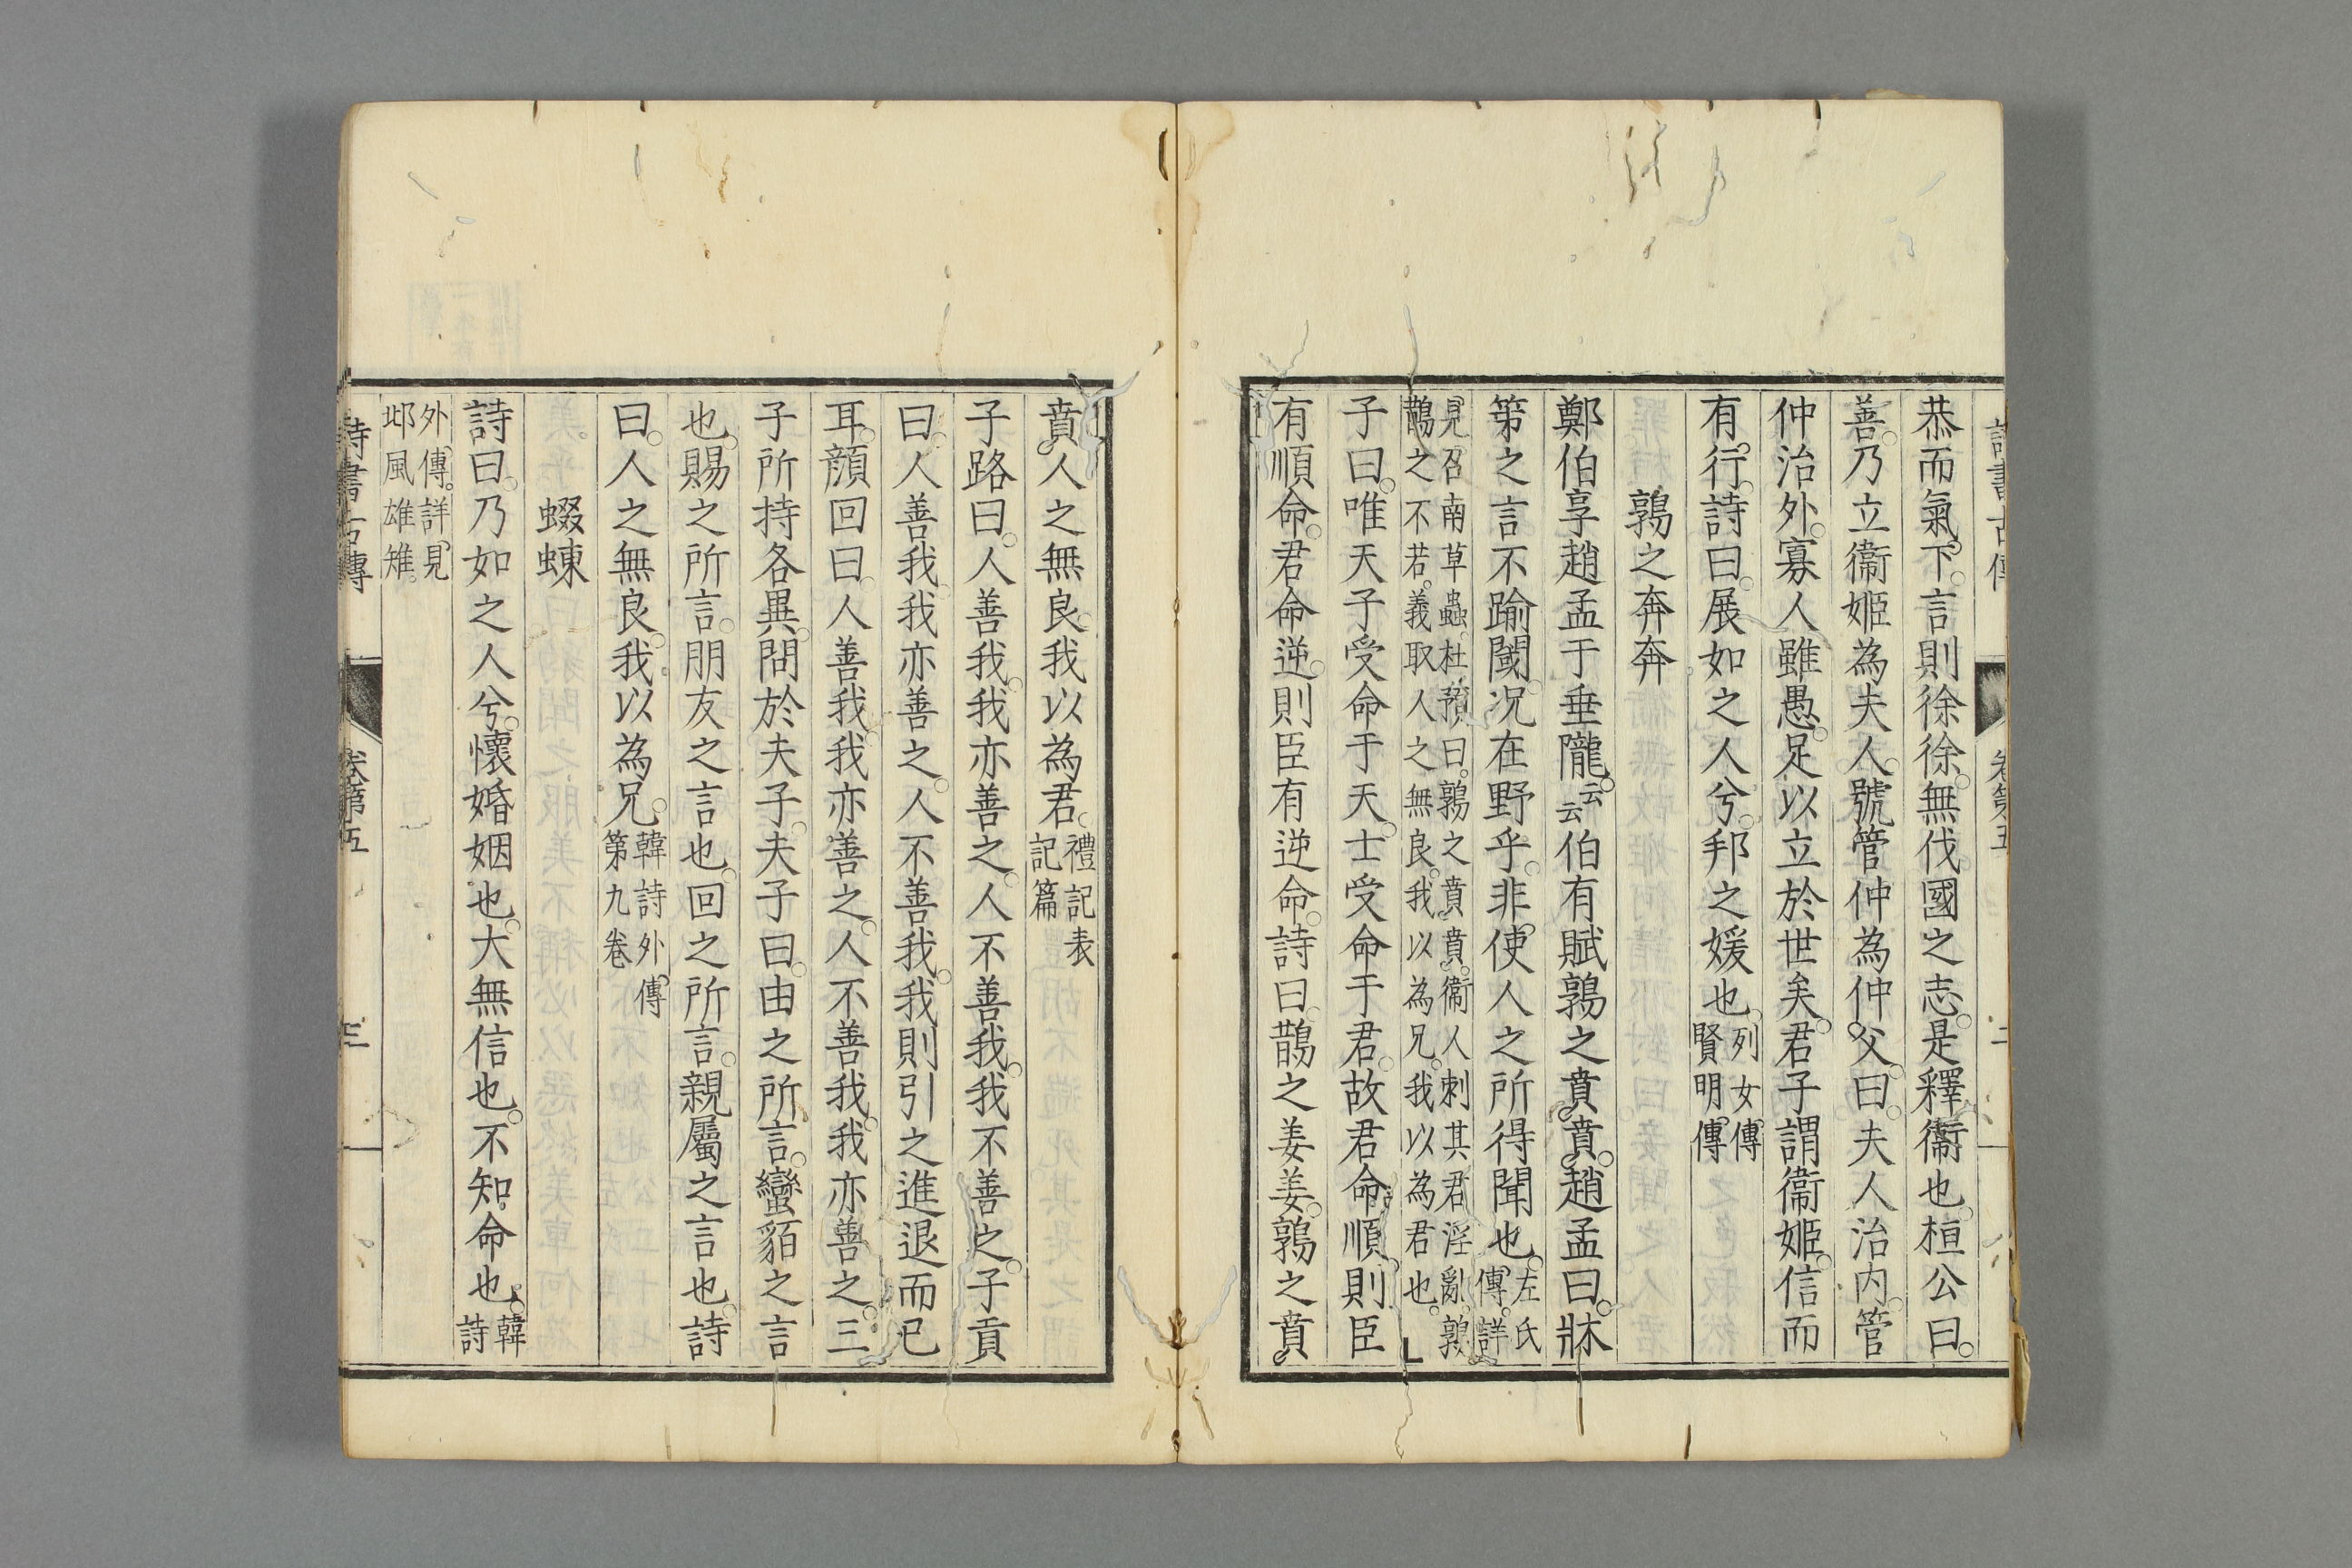 恭而氣下。言則徐徐。無伐國之志。是釋衞也。桓公曰。
善。乃立衞姬為夫人。號管仲為仲父。曰。夫人治内。管
仲治外。寡人雖愚。足以立於世矣。君子謂衞姬。信而
有行。詩曰。展如之人兮。邦之媛也。列女傳
賢明傳
鶉之奔奔
鄭伯享趙孟于垂隴。云云伯有賦鶉之賁賁。趙孟曰。牀
第之言不踰閾。况在野乎。非使人之所得聞也。左氏
傳。詳
見召南草蟲。杜預曰。鶉之賁賁。衞人刺其君淫亂。鶉
鵲之不若。義取人之無良。我以為兄。我以為君也。
子曰。唯天子受命于天。士受命于君。故君命順。則臣
有順命。君命逆。則臣有逆命。詩曰。鵲之姜姜。鶉之賁
賁。人之無良。我以為君。禮記表
記篇
子路曰。人善我。我亦善之。人不善我。我不善之。子貢
曰。人善我。我亦善之。人不善我。我則引之進退而已
耳。顔回曰。人善我。我亦善之。人不善我。我亦善之。三
子所持各異。問於夫子。夫子曰。由之所言。蠻貊之言
也。賜之所言。朋友之言也。回之所言。親屬之言也。詩
曰。人之無良。我以為兄。韓詩外傳
第九卷
蝃蝀
詩曰。乃如之人兮。懷婚姻也。大無信也。不知命也。韓
詩
外傳。詳見
邶風雄雉。
詩書古傳
卷第五
三